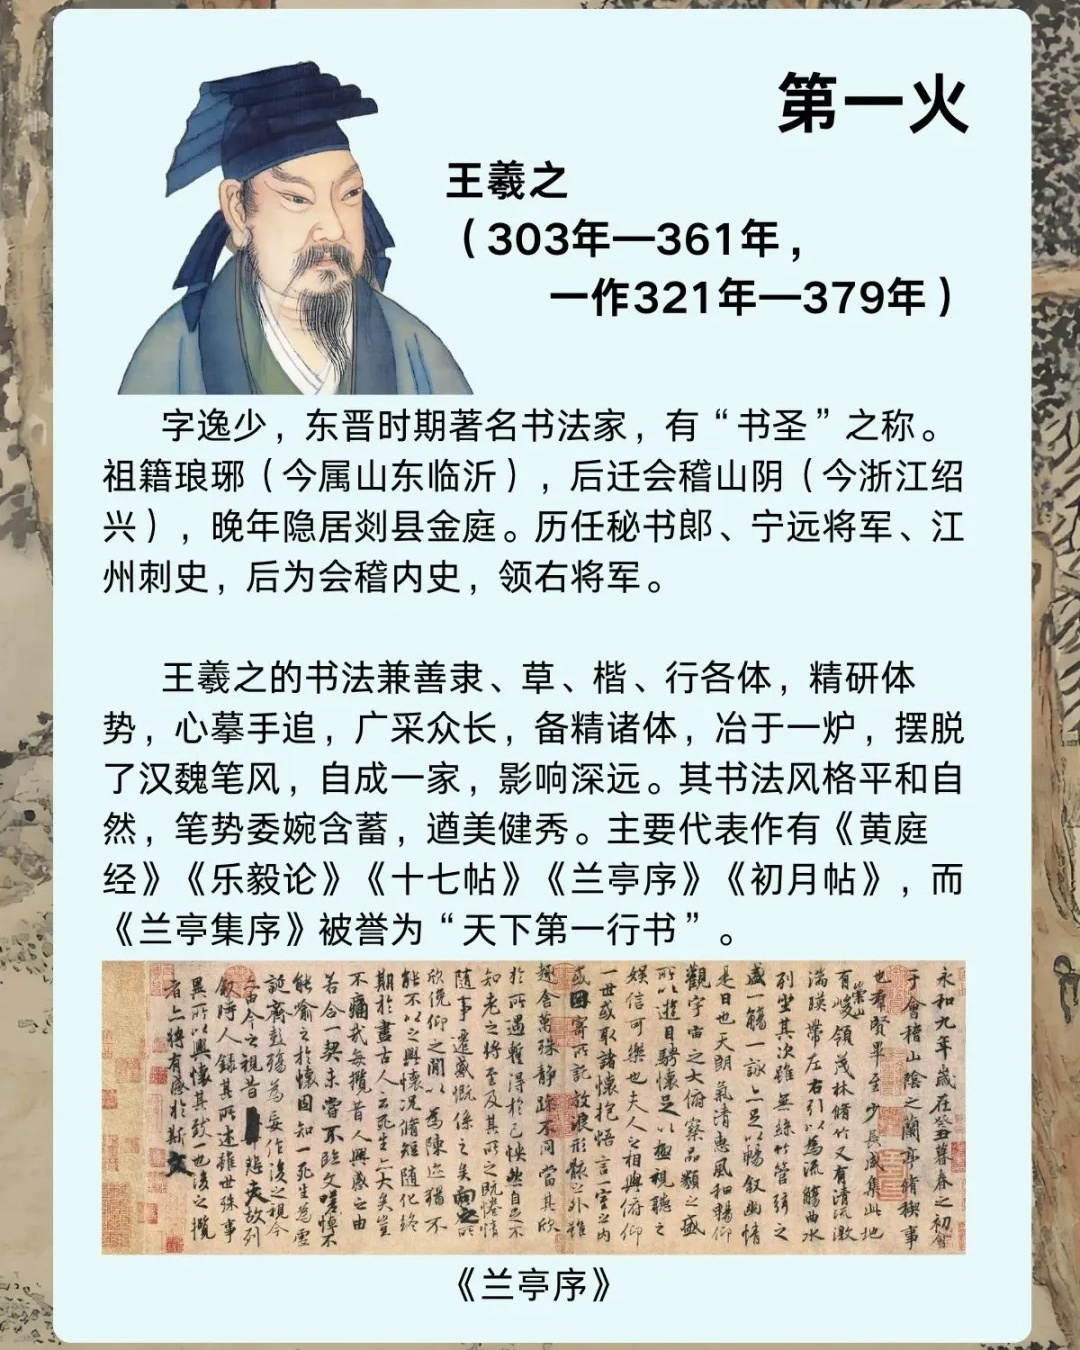 第一火
王羲之
（303年—361年，
一作321年—379年）
字逸少，东晋时期著名书法家，有“书圣”之称。
祖籍琅琊（今属山东临沂），后迁会稽山阴（今浙江绍
兴），晚年隐居剡县金庭。历任秘书郎、宁远将军、江
州刺史，后为会稽内史，领右将军。
王羲之的书法兼善隶、草、楷、行各体，精研体
势，心摹手追，广采众长，备精诸体，冶于一炉，摆脱
了汉魏笔风，自成一家，影响深远。其书法风格平和自
然，笔势委婉含蓄，遒美健秀。主要代表作有《黄庭
经》《乐毅论》《十七帖》《兰亭序》《初月帖》，而
《兰亭集序》被誉为“天下第一行书”。
永和九年歲在癸丑暮春之初會
于會稽山陰之蘭亭脩禊事
也羣賢畢至少長咸集此地
有崇山峻領茂林脩竹又有清流激
湍暎帶左右引以為流觴曲水
列坐其次雖無絲竹管弦之
盛一觴一詠亦足以暢敘幽情
是日也天朗氣清惠風和暢仰
觀宇宙之大俯察品類之盛
所以遊目騁懷足以極視聽之
娛信可樂也夫人之相與俯仰
一世或取諸懷抱悟言一室之內
或因寄所託放浪形骸之外雖
趣舍萬殊靜躁不同當其欣
於所遇蹔得於己怏然自足不
知老之將至及其所之既惓情
隨事遷感慨係之矣向之所
欣俛仰之閒以為陳迹猶不
能不以之興懷況脩短隨化終
期於盡古人云死生亦大矣豈
不痛哉每攬昔人興感之由
若合一契未嘗不臨文嗟悼不
能喻之於懷固知一死生為虛
誕齊彭殤為妄作後之視今
亦由今之視昔悲夫故列
敘時人錄其所述雖世殊事
異所以興懷其致一也後之攬
者亦將有感於斯文
《兰亭序》